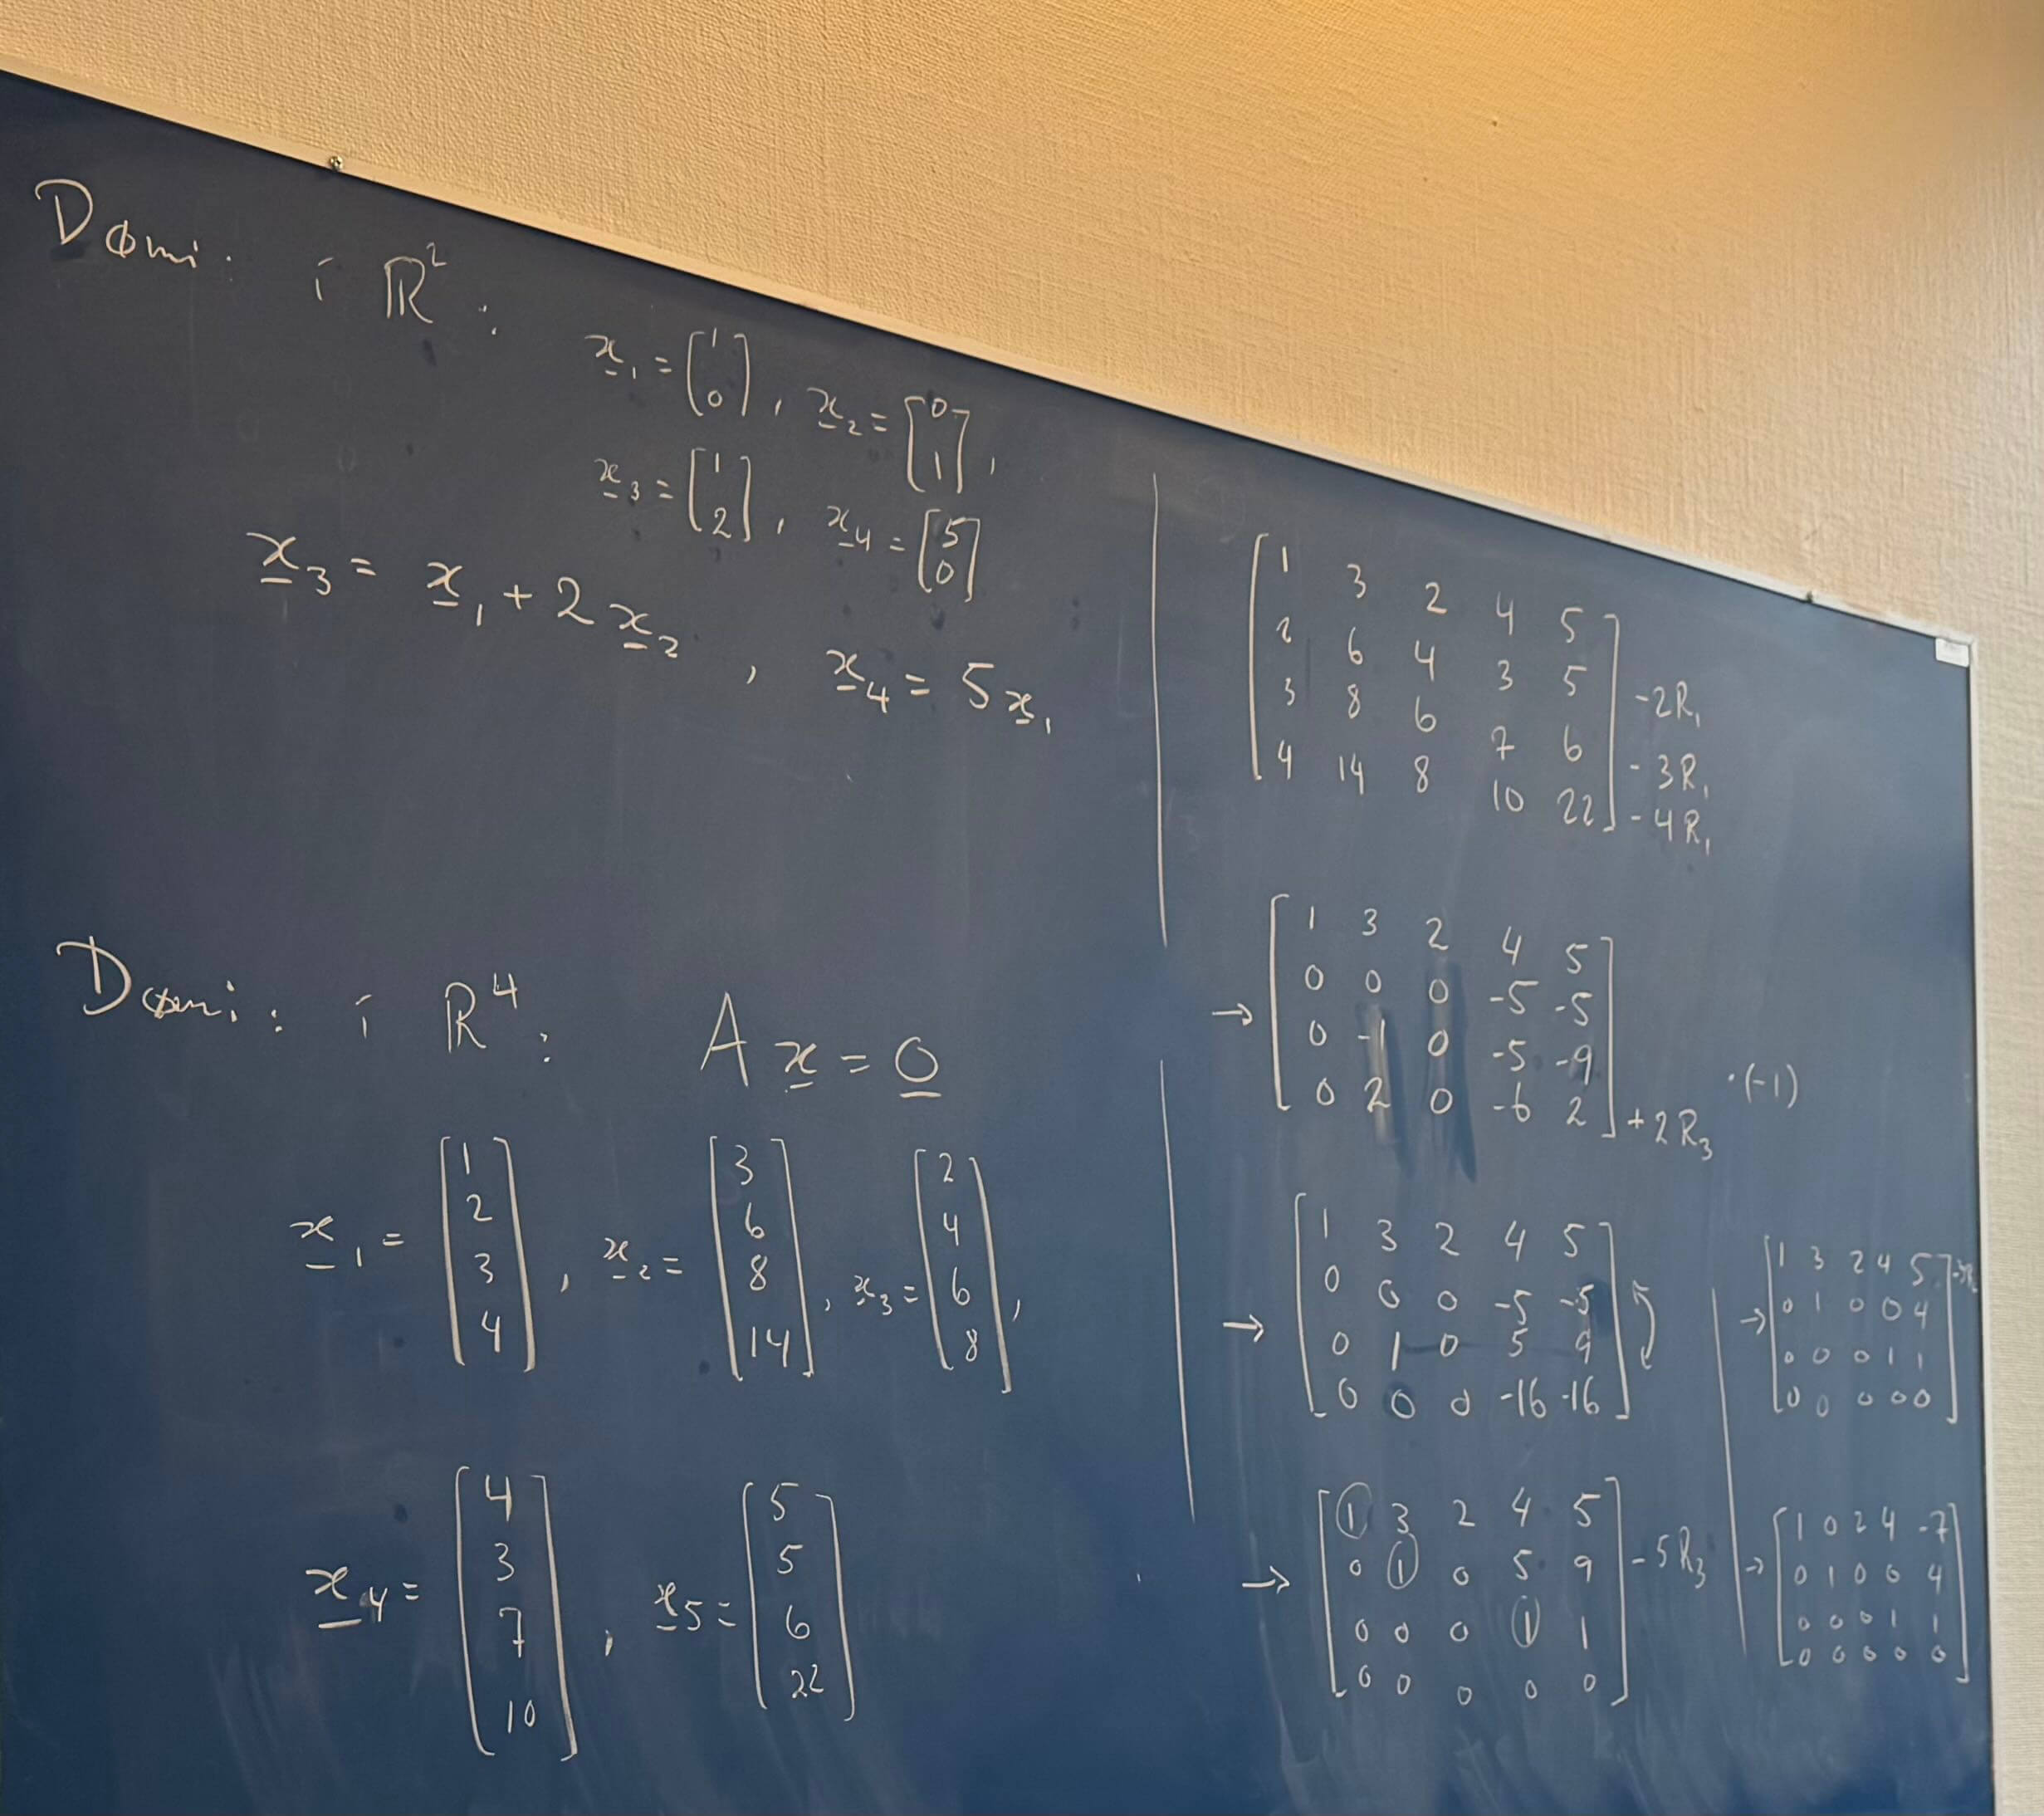 Dømi: í ℝ²:
x₁ = [1 0], x₂ = [0 1],
x₃ = [1 2], x₄ = [5 0]
x₃ = x₁ + 2x₂, x₄ = 5x₁
Dømi: í ℝ⁴: Ax = 0
x₁ = [1 2 3 4], x₂ = [3 6 8 14], x₃ = [2 4 6 8],
x₄ = [4 3 7 10], x₅ = [5 5 6 22]
1 3 2 4 5
2 6 4 3 5 -2R₁
3 8 6 7 6 -3R₁
4 14 8 10 22 -4R₁
→
1 3 2 4 5
0 0 0 -5 -5
0 -1 0 -5 -9 ·(-1)
0 2 0 -6 2 +2R₃
→
1 3 2 4 5
0 0 0 -5 -5
0 1 0 5 9
0 0 0 -16 -16
→
1 3 2 4 5
0 1 0 5 9 -5R₃
0 0 0 1 1
0 0 0 0 0
→
1 3 2 4 5 -3R₂
0 1 0 0 4
0 0 0 1 1
0 0 0 0 0
→
1 0 2 4 -7
0 1 0 0 4
0 0 0 1 1
0 0 0 0 0